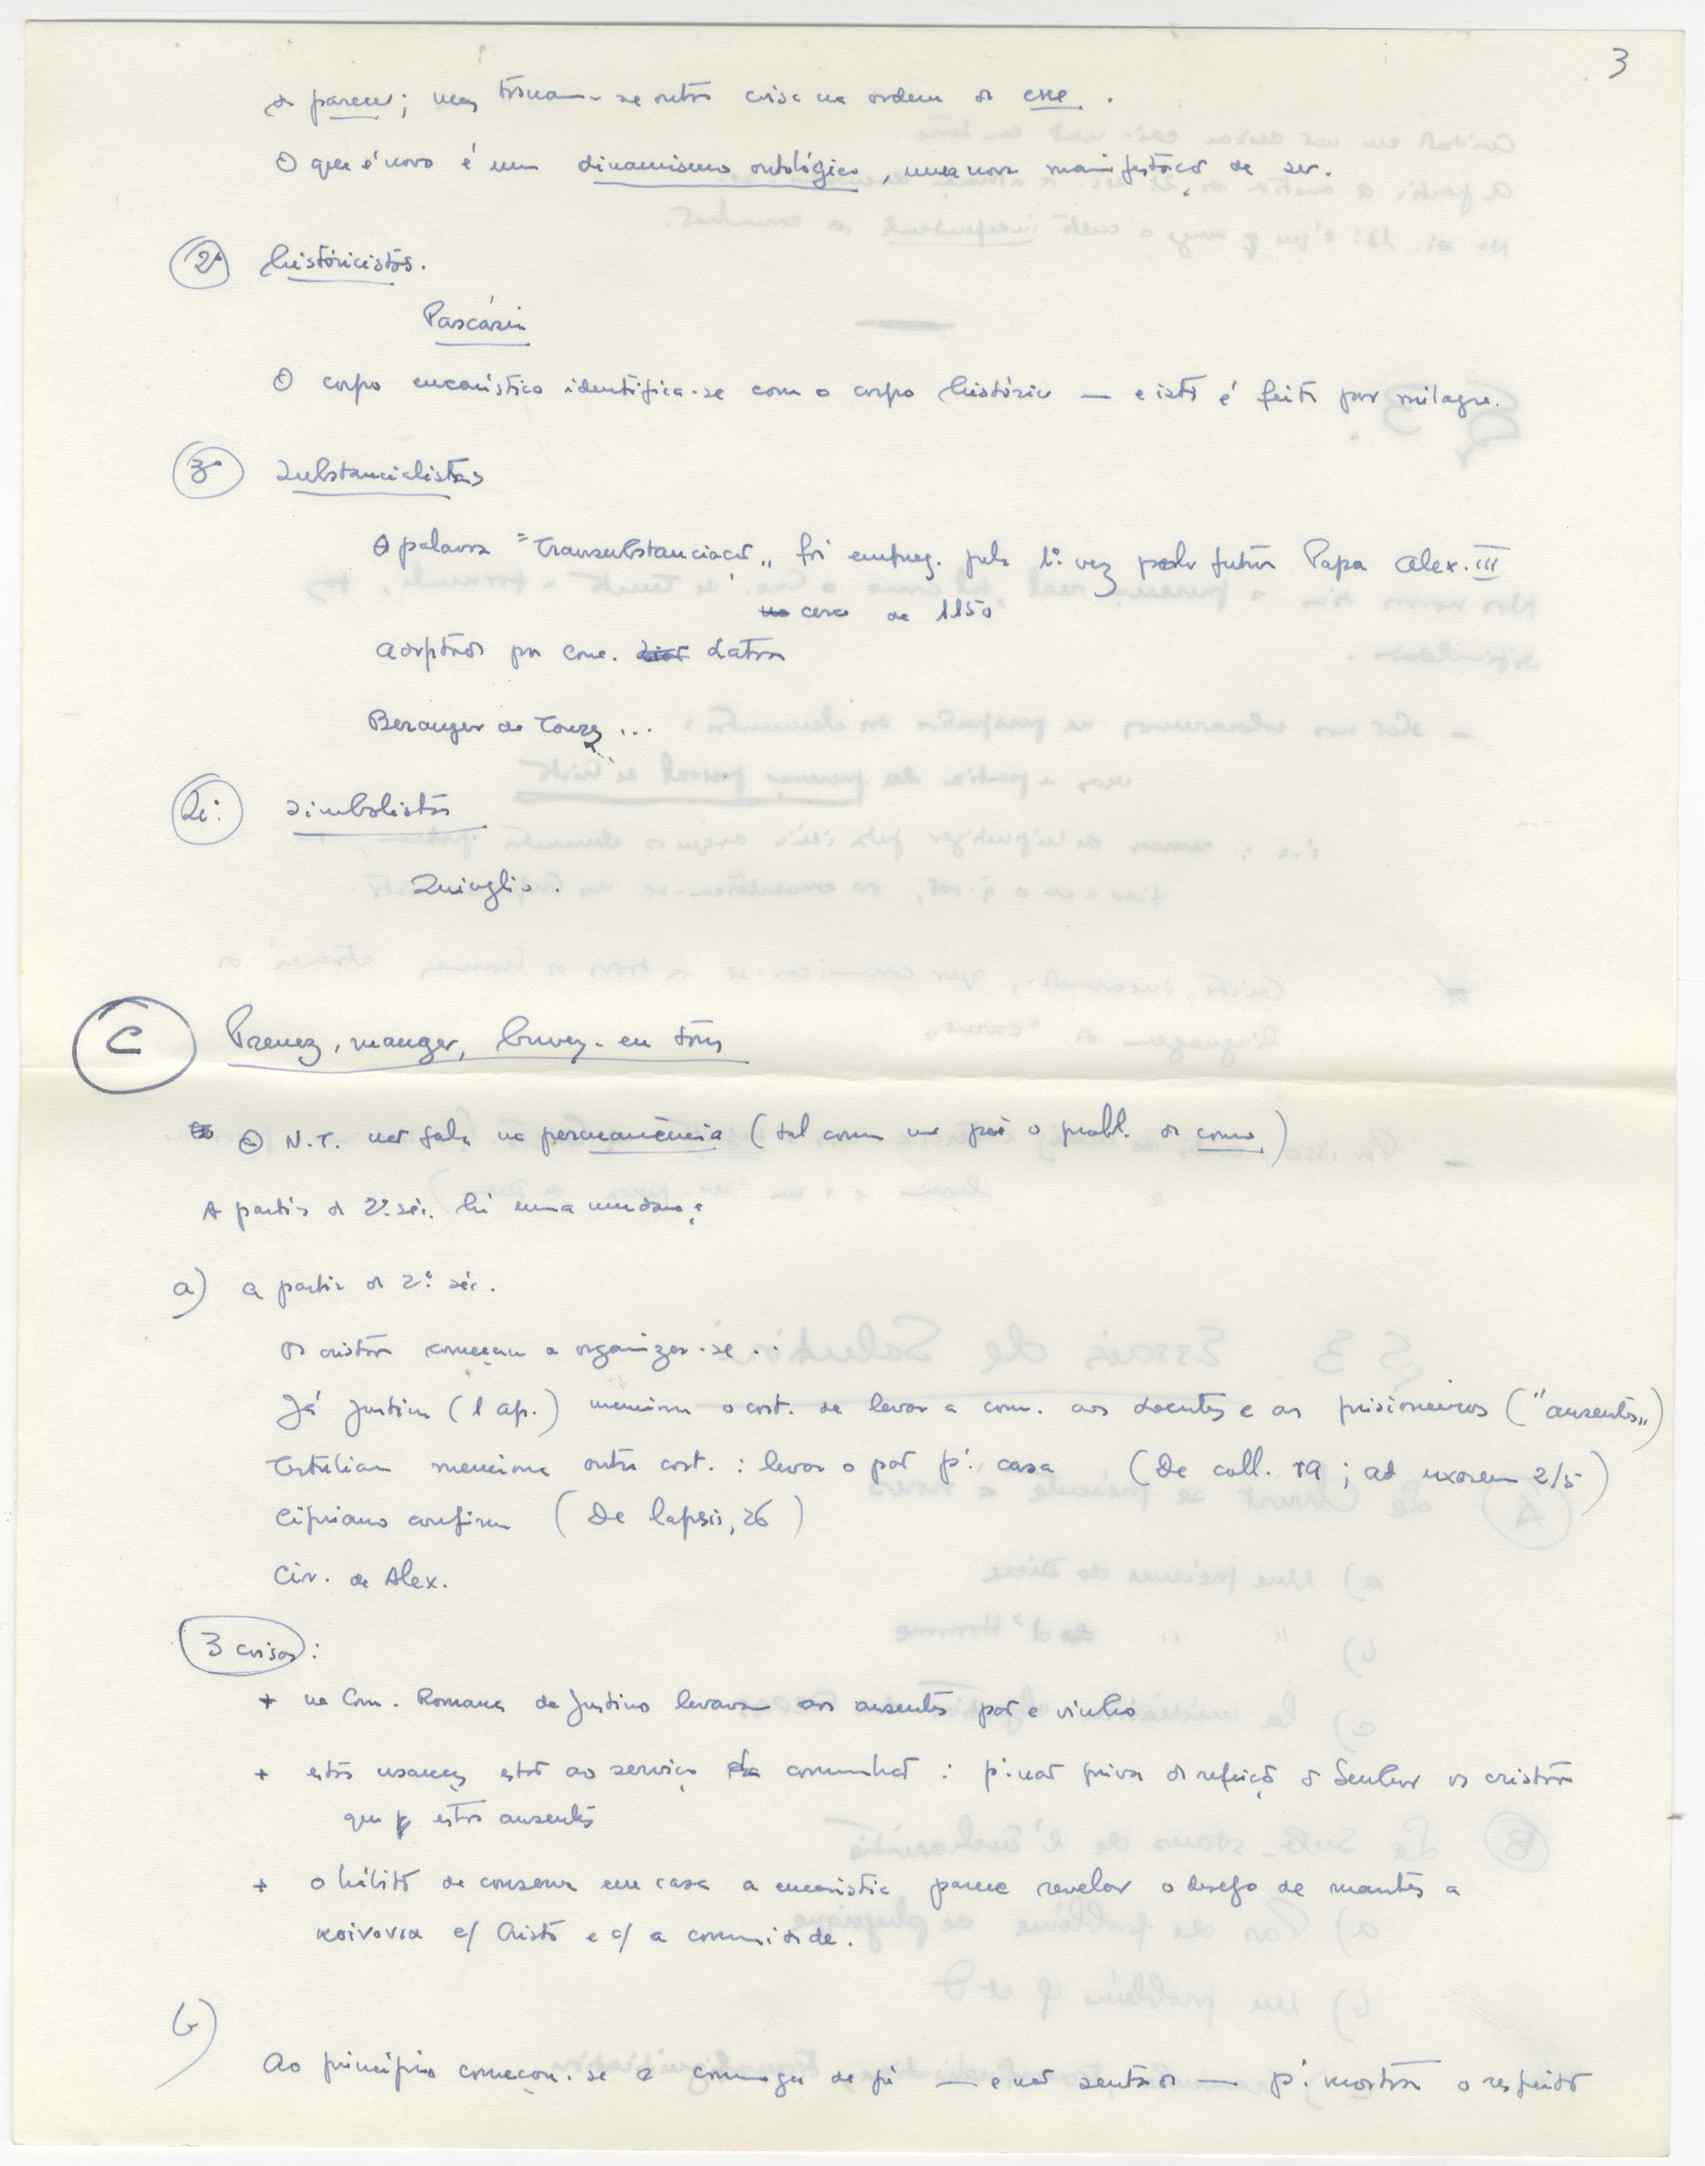 3
do parecer; mas tornam-se outra coisa na ordem do esse.
O que é novo é um dinamismo ontológico, uma nova manifestação de ser.
2º históricistas.
Pascásio
O corpo eucarístico identifica-se com o corpo histórico — e isto é feito por milagre.
3º substancialistas
A palavra "transubstanciação" foi empreg. pela 1ª vez pelo futuro Papa Alex. III
cerca de 1150
Adoptado por conc. Latrão
Beranger de Tours ...
simbolistas
Zuinglio.
C Prenez, manger, buvez-en tous
O N.T. não fala na permanência (tal como não põe o probl. do como)
A partir do 2º séc. há uma mudança
a) a partir do 2º séc.
Os cristãos começam a organizar-se ..
Já Justino (1 ap.) menciona o cost. de levar a com. aos doentes e aos prisioneiros ("ausentes")
Tertuliano menciona outro cost. : levar o pão p. casa (De coll. 19 ; ad uxorem 2/5)
Cipriano confirma (De lapsis, 26)
Cir. de Alex.
3 coisas :
+ na Com. Romana de Justino levavam aos ausentes pão e vinho
+ estas usanças estão ao serviço da comunhão : p. não privar da refeição do Senhor os cristãos
que estão ausentes
+ o hábito de conservar em casa a eucaristia parece revelar o desejo de manter a
κοινονια c/ Cristo e c/ a comunidade.
b)
Ao princípio começou-se a comungar de pé — e não sentados — p. mostrar o respeito